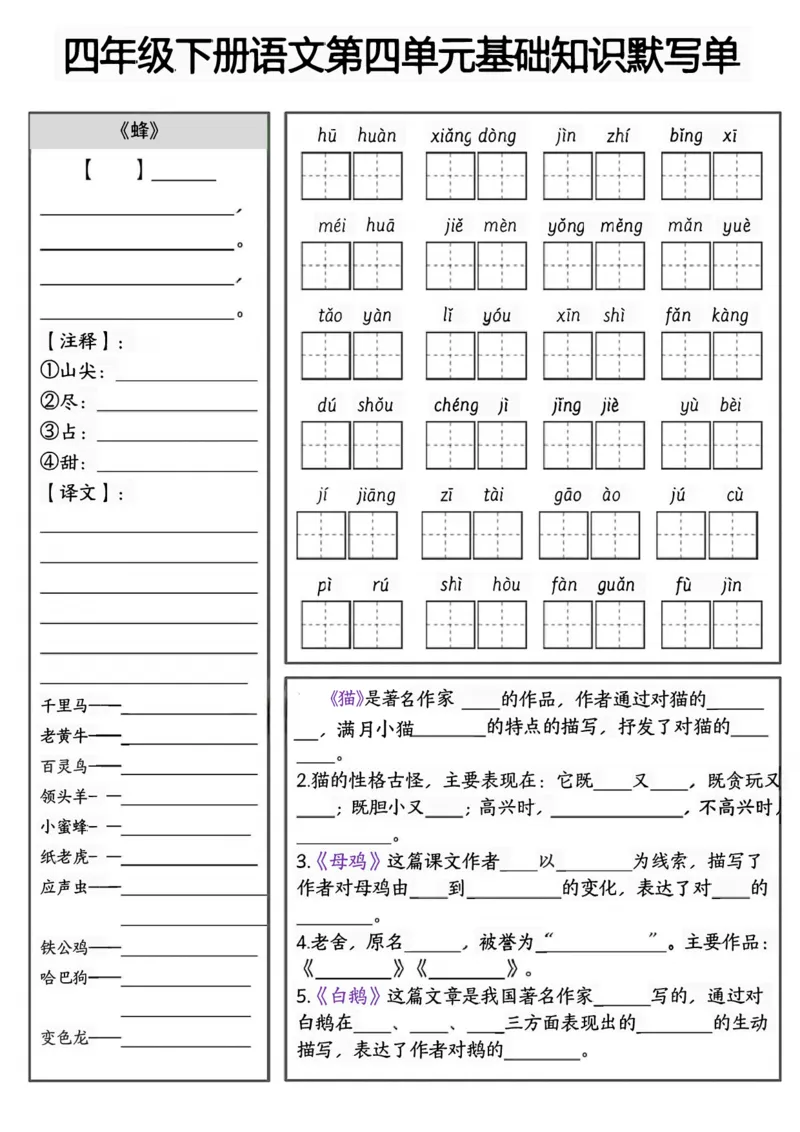 四年级下册语文第四单元基础知识默写单
《蜂》
【 】______
____________________，
____________________。
____________________，
____________________。
【注释】：
①山尖：______________
②尽：________________
③占：________________
④甜：________________
【译文】：
千里马——______________
老黄牛——______________
百灵鸟——______________
领头羊- —______________
小蜜蜂- —______________
纸老虎- —______________
应声虫——______________
铁公鸡——______________
哈巴狗——______________
变色龙——______________
hū huàn xiǎng dòng jìn zhí bǐng xī
méi huā jiě mèn yǒng měng mǎn yuè
tǎo yàn lǐ yóu xīn shì fǎn kàng
dú shǒu chéng jì jǐng jiè yù bèi
jí jiāng zī tài gāo ào jú cù
pì rú shì hòu fàn guǎn fù jìn
《猫》是著名作家 ____的作品，作者通过对猫的______
__，满月小猫________的特点的描写，抒发了对猫的____
____。
2.猫的性格古怪，主要表现在：它既____又____，既贪玩又
____；既胆小又____；高兴时，______________，不高兴时，
__________。
3.《母鸡》这篇课文作者____以________为线索，描写了
作者对母鸡由____到__________的变化，表达了对____的
________。
4.老舍，原名______，被誉为“______________”。主要作品：
《________》《________》。
5.《白鹅》这篇文章是我国著名作家______写的，通过对
白鹅在____、____、____三方面表现出的________的生动
描写，表达了作者对鹅的________。